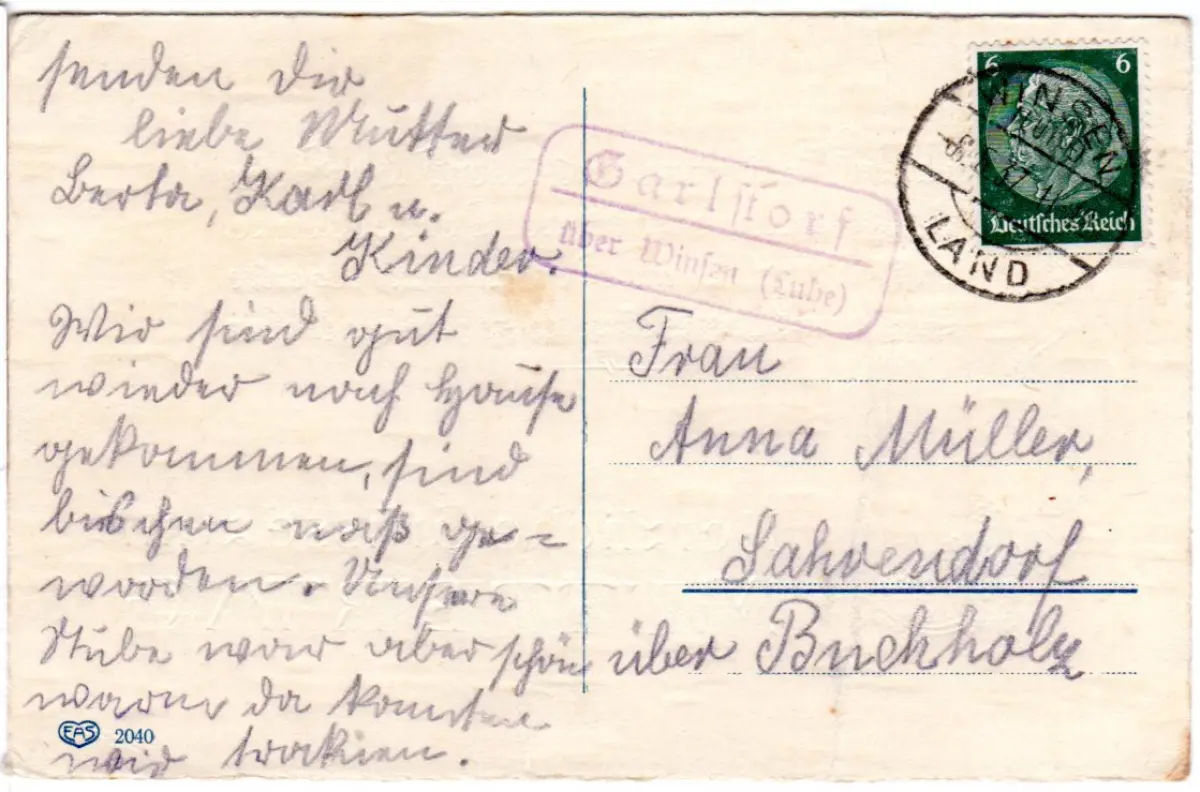 senden dir
liebe Mutter
Berta, Karl u.
Kinder.
Wir sind gut
wieder nach Hause
gekommen, sind
bischen naß ge=
worden. Unsere
Stube war aber schön
warm da konnten
wir trocknen.
EAS 2040
Garlstorf
über Winsen (Luhe)
6 6
Deutsches Reich
WINSEN
LAND
Frau
Anna Müller,
Sahrendorf
über Buchholz